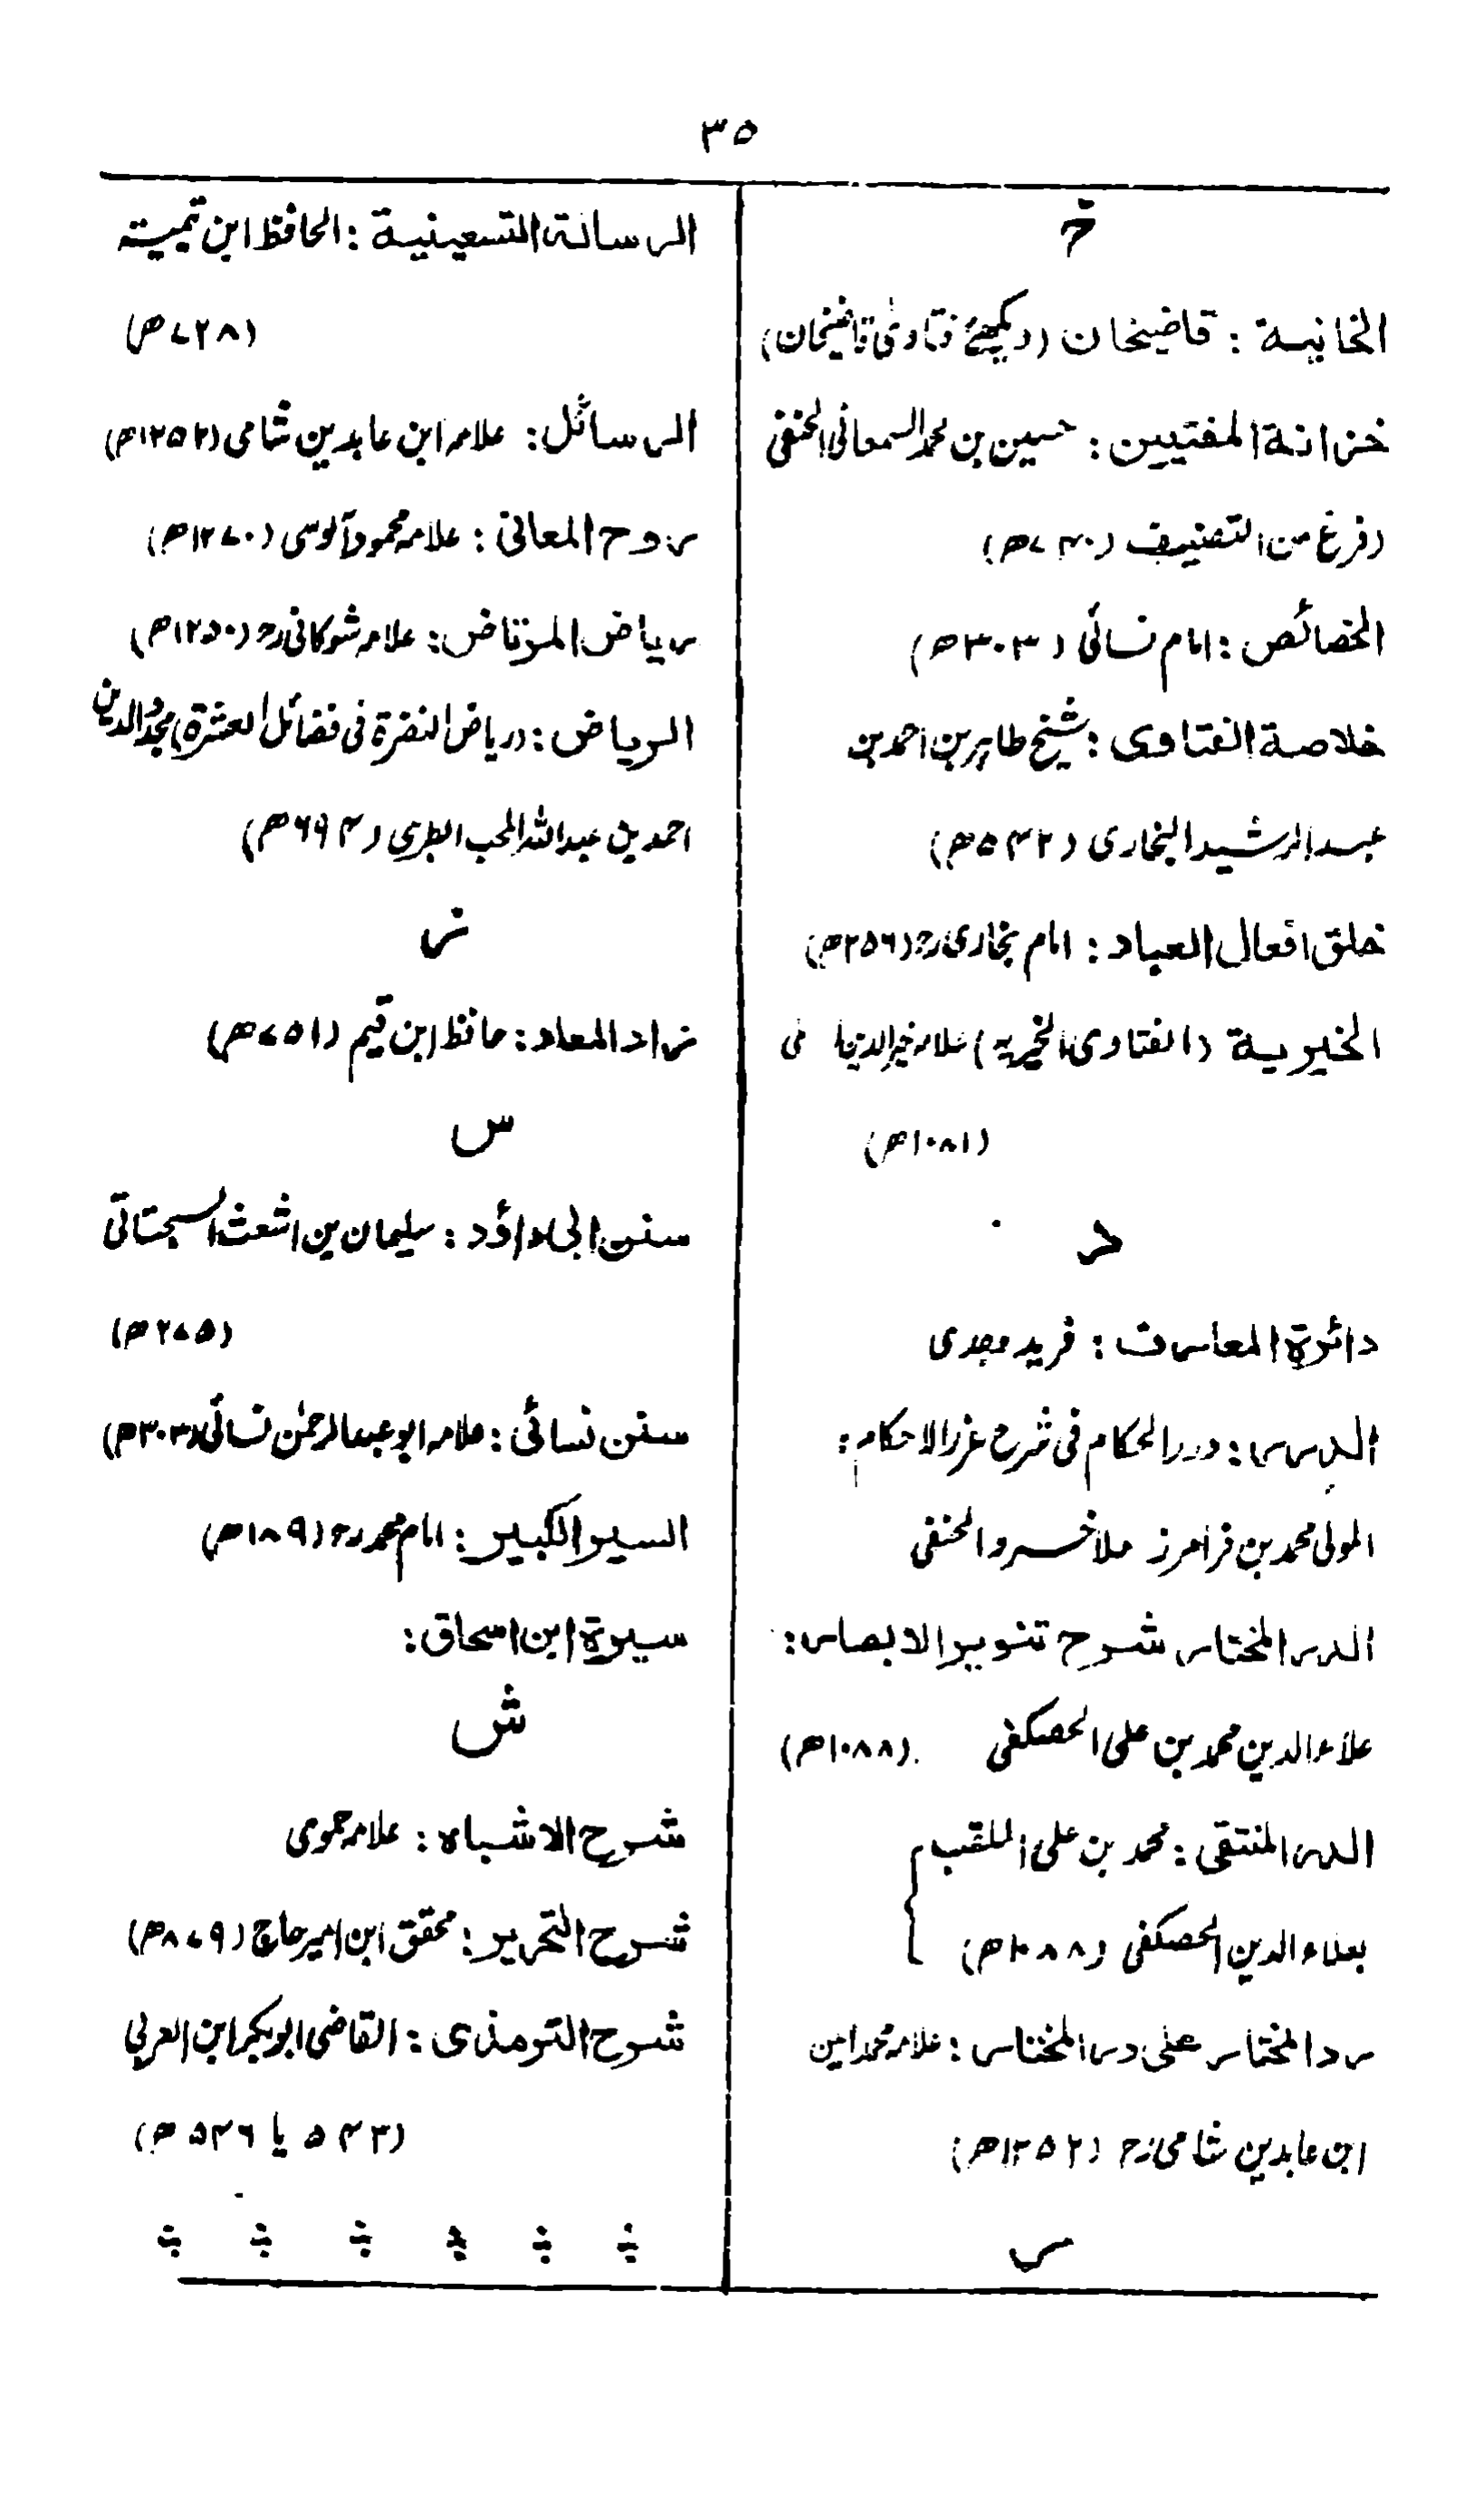 ۳۵
خ
الخانیة : قاضیخان (دیکھئے فتاویٰ قاضیخان)
خزانة المفتیین : حسین بن محمد السمعانی الحنفی
(فرغ من التصنیف (۷۴۰ھ)
الخصائص : امام نسائی (۳۰۳ھ)
خلاصة الفتاوی : شیخ طاہر بن احمد بن
عبد الرشید البخاری (۵۴۲ھ)
خلق افعال العباد : امام بخاریؒ (۲۵۶ھ)
الخیریة (الفتاوی الخیریہ) علامہ خیر الدین
(۱۰۸۱ھ)
د
دائرة المعارف : فرید وجدی
الدرر : درر الحکام فی شرح غرر الاحکام :
المولی محمد بن فرامرز ملا خسرو الحنفی
الدر المختار شرح تنویر الابصار :
علاء الدین محمد بن علی الحصکفی (۱۰۸۸ھ)
الدر المنتقی : محمد بن علی الملقب
بعلاء الدین الحصکفی (۱۰۸۸ھ)
رد المختار علی در المختار : علامہ محمد امین
ابن عابدین شامی رح (۱۲۵۲ھ)
ر
الرسالة التسعینیة : الحافظ ابن تیمیۃ
(۷۲۸ھ)
الرسائل : علامہ ابن عابدین شامی (۱۲۵۲ھ)
روح المعانی : علامہ محمود آلوسی (۱۲۷۰ھ)
ریاض المرتاض : علامہ شوکانی رح (۱۲۵۰ھ)
الریاض : (ریاض النضرة فی فضائل العشرة) محب الدین
احمد بن عبد اللہ المحب الطبری (۶۹۴ھ)
ز
زاد المعاد : حافظ ابن قیم (۷۵۱ھ)
س
سنن ابی داؤد : سلیمان بن اشعث السجستانی
(۲۷۵ھ)
سنن نسائی : علامہ ابو عبد الرحمٰن نسائی (۳۰۳ھ)
السیر الکبیر : امام محمد رح (۱۸۹ھ)
سیرة ابن اسحاق :
ش
شرح الاشباہ : علامہ حموی
شرح التحریر : محقق ابن امیر حاج (۸۷۹ھ)
شرح الترمذی : القاضی ابو بکر ابن العربی
(۵۴۳ یا ۵۴۶ھ)